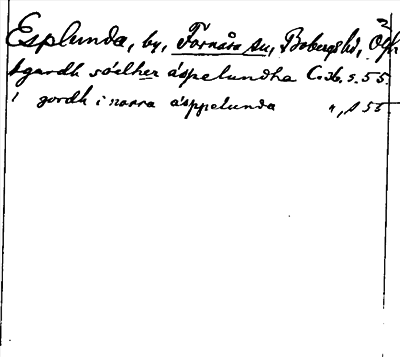 Esplunda, by, Fornåsa sn, Bobergs hd, Ögl.
1 gardh söelher äspelundha C. 36. s. 55.
1 gordh i norra äsppelunda " , s 55